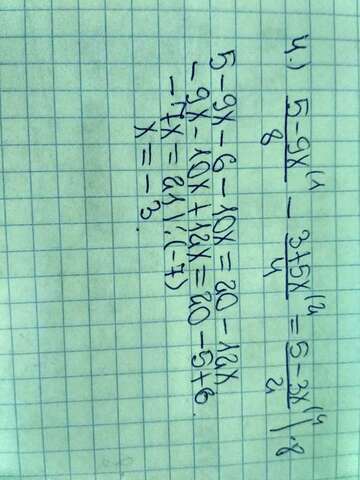 4.) (5-9x)/8 ^(1 - (3+5x)/4 ^(2 = (5-3x)/2 ^(4 | ·8
5-9x-6-10x=20-12x
-9x-10x+12x=20-5+6
-7x=21 | :(-7)
x=-3.